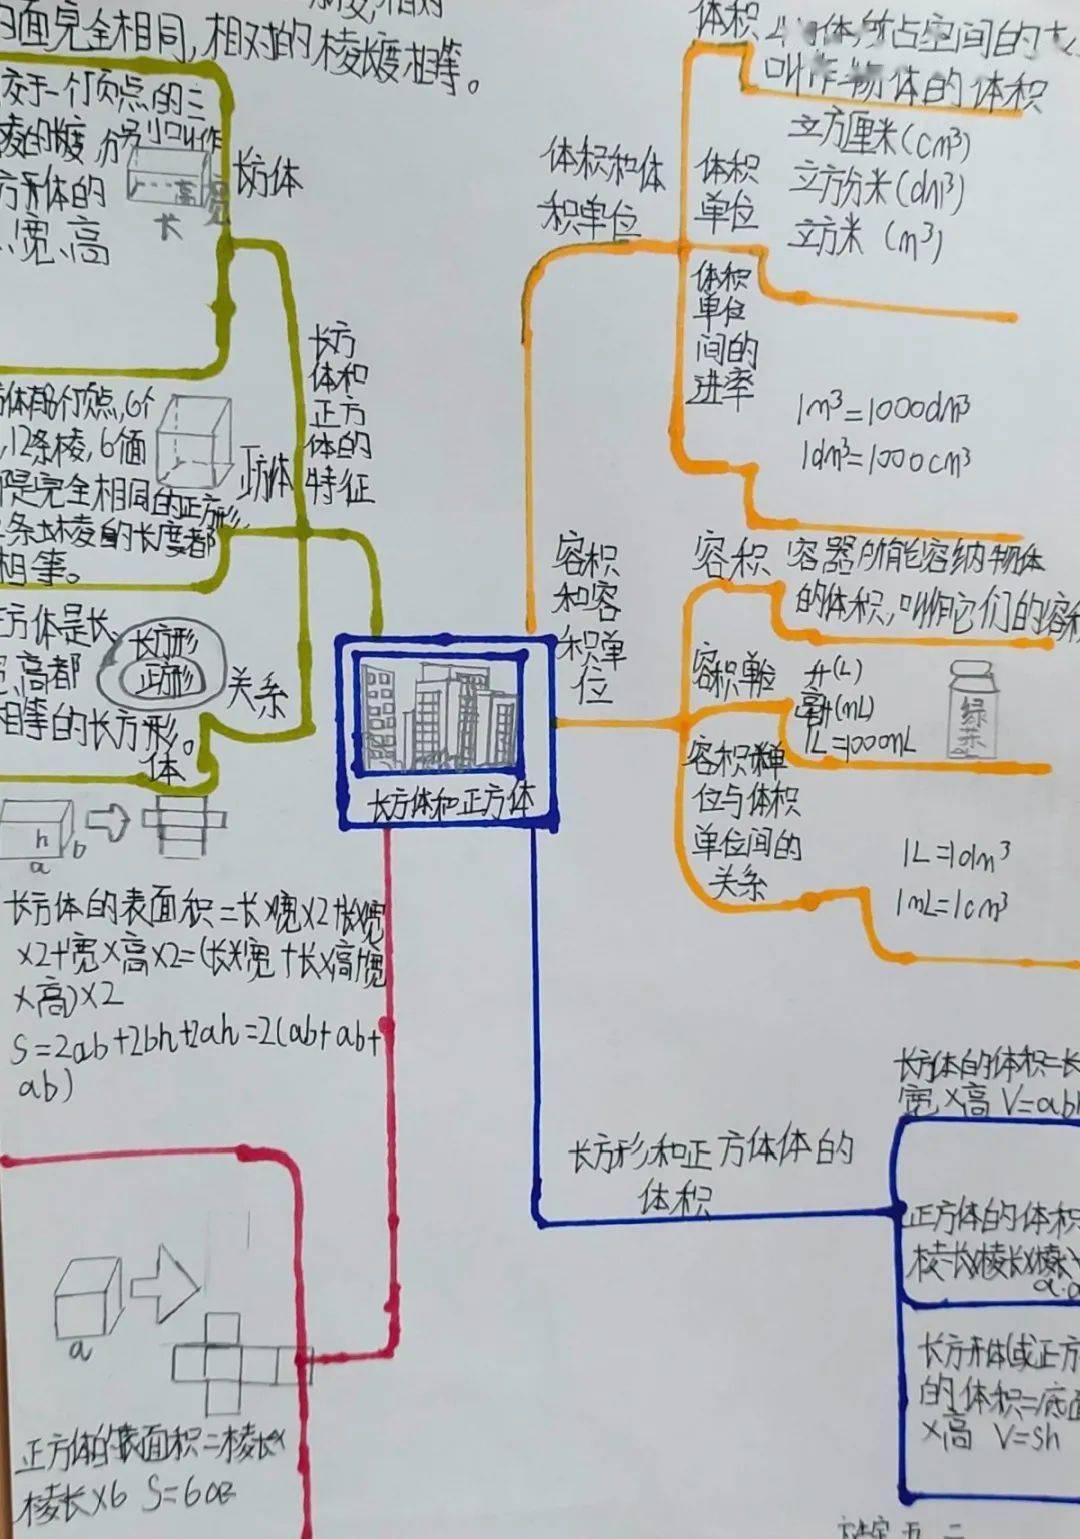 的面完全相同,相对的棱长度相等。
交于一个顶点的三
棱的长度,分别叫作
方形体的
、宽、高
长方体
高
宽
长
长方
体和
正方
体的
特征
体有8个顶点,6个
,12条棱,6个面
都是完全相同的正方形,
条棱的长度都
相等。
正方体
正方体是长、
宽、高都
相等的长方形。
体
长方形
正方形
关系
h
b
a
长方体的表面积=长×宽×2+长×宽
×2+宽×高×2=(长×宽+长×高+宽
×高)×2
S=2ab+2bh+2ah=2(ab+ab+
ab)
a
正方体的表面积=棱长×
棱长×6 S=6a²
长方体和正方体
体积和体
积单位
体积
物体所占空间的大
叫作物体的体积
体积
单位
立方厘米(cm³)
立方分米(dm³)
立方米(m³)
体积
单位
间的
进率
1m³=1000dm³
1dm³=1000cm³
容积
和容
积单
位
容积
容器所能容纳物体
的体积,叫作它们的容积
容积单位
升(L)
毫升(mL)
1L=1000mL
绿
茶
容积单
位与体积
单位间的
关系
1L=1dm³
1mL=1cm³
长方形和正方体体的
体积
长方体的体积=长
宽×高 V=abh
正方体的体积
棱长×棱长×棱长
a·a
长方体(或正方
的体积=底面
×高 V=Sh